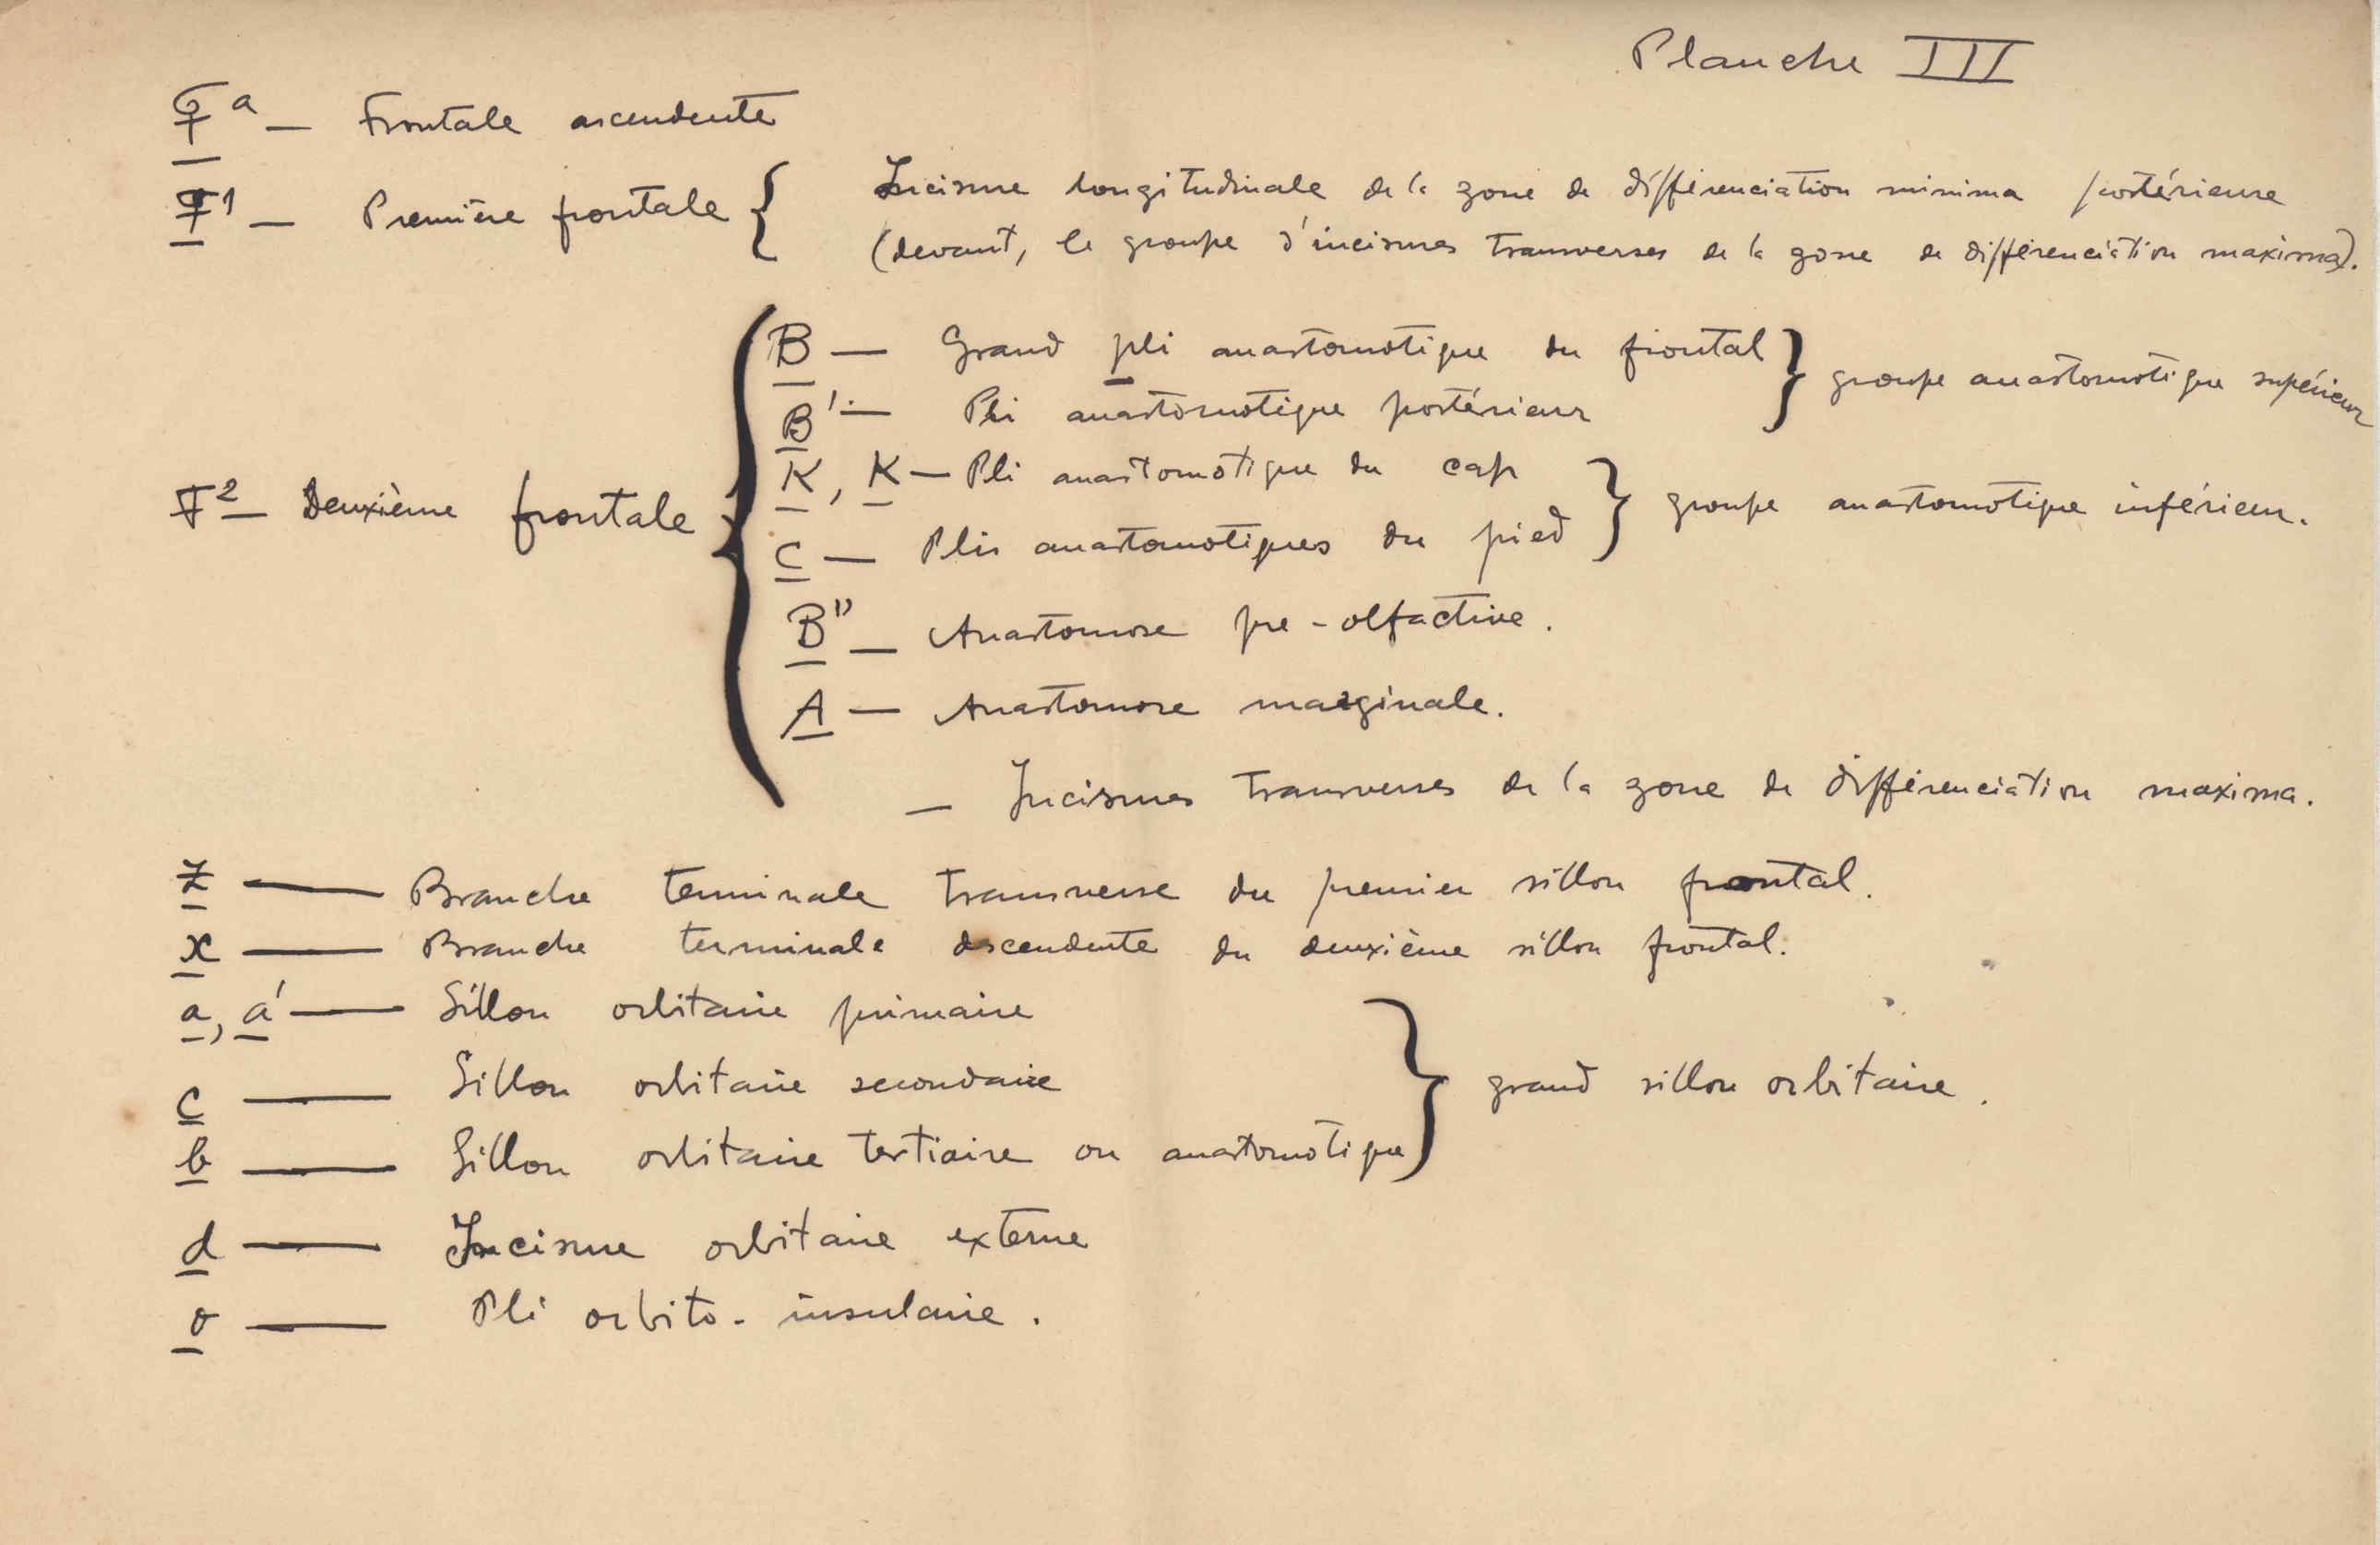 Planche III
Fª — Frontale ascendente
F¹ — Première frontale { Incisure longitudinale de la zone de différenciation minima postérieure
(devant, le groupe d'incisures transverses de la zone de différenciation maxima).
B — Grand pli anastomotique du frontal } groupe anastomotique supérieur
B' — Pli anastomotique postérieur
K, K — Pli anastomotique du cap } groupe anastomotique inférieur.
F² — Deuxième frontale {
C — Plis anastomotiques du pied
B" — Anastomose pre-olfactive.
A — Anastomose marginale.
— Incisures transverses de la zone de différenciation maxima.
Z — Branche terminale transverse du premier sillon frontal.
x — Branche terminale descendente du deuxième sillon frontal.
a, a' — Sillon orbitaire primaire
c — Sillon orbitaire secondaire } grand sillon orbitaire.
b — Sillon orbitaire tertiaire ou anastomotique
d — Incisure orbitaire externe
o — Pli orbito-insulaire.